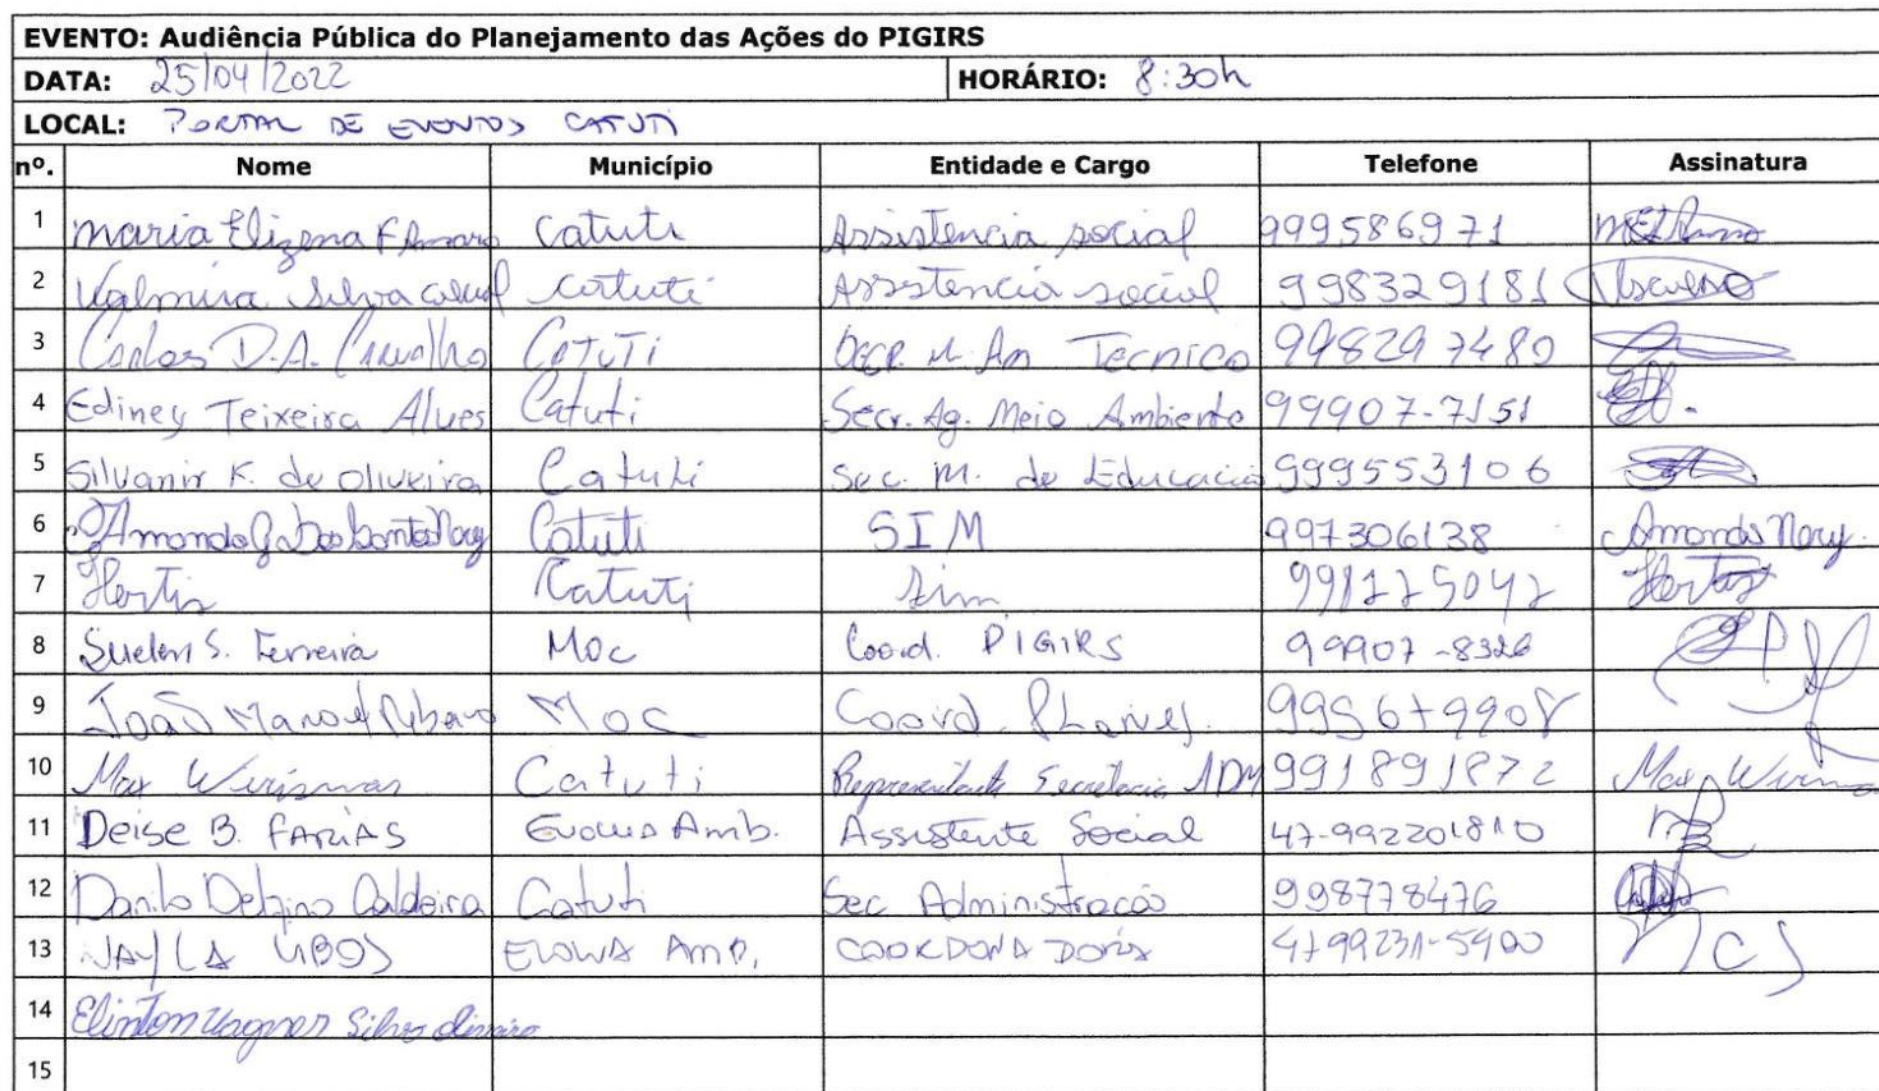 EVENTO: Audiência Pública do Planejamento das Ações do PIGIRS
DATA: 25/04/2022 HORÁRIO: 8:30h
LOCAL: PORTAL DE EVENTOS CATUTI
nº. Nome Município Entidade e Cargo Telefone Assinatura
1 Maria Elizena F Amaro Catuti Assistencia social 999586971
2 Valmira Silva Catuti Assistencia social 998329181
3 Carlos D.A. Carvalho CATUTi Tecnico 998297480
4 Ediney Teixeira Alves Catuti Secr. Ag. Meio Ambiente 99907-7151
5 Silvanir K. de Oliveira Catuti Sec. M. de Educação 999553106
6 Amanda G. Dos Santos Nery Catuti SIM 997306138 Amanda Nery.
7 Catuti Sim
8 Suelen S. Ferreira Moc Coord. PIGIRS 99907-8326
9 João Manoel Ribeiro Moc Coord. Planej.
10 Max Catuti Representante Secretaria ADM 991891872 Max
11 Deise B. FARIAS Evolua Amb. Assistente Social 47-992201810
12 Danilo Delfino Caldeira Catuti Sec Administração 998778476
13 EVOLUA AMB. COORDENADORA 4799231-5400
14 Elinton Wagner Silva
15